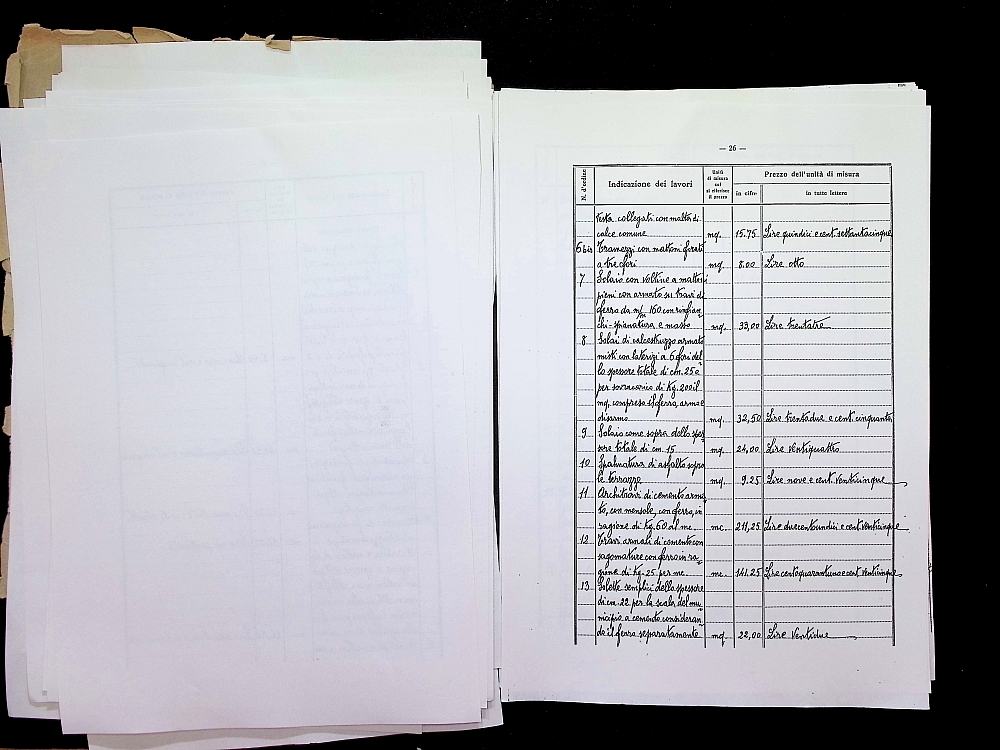 — 26 —
N. d'ordine
Indicazione dei lavori
Unità
di misura
cui
si riferisce
il prezzo
Prezzo dell'unità di misura
in cifre
in tutte lettere
testa collegati con malta di
calce comune mq. 15.75 Lire quindici e cent. settantacinque
6 bis Tramezzi con mattoni forati
a tre fori mq. 8.00 Lire otto
7 Solaio con voltine a mattoni
pieni con armato su travi di
ferro da m/m 160 con rinfian_
chi - spianatura e masso mq. 33,00 Lire trentatre
8 Solai di calcestruzzo armato
misti con laterizi a 6 fori del_
lo spessore totale di cm. 25 e
per sovracarico di Kg. 200 il
mq. compreso il ferro, arma e
disarmo mq. 32,50 Lire trentadue e cent. cinquanta
9 Solaio come sopra dello spes_
sore totale di cm. 15 mq. 24,00 Lire ventiquattro
10 Spalmatura di asfalto sopra
le terrazze mq. 9.25 Lire nove e cent. venticinque
11 Architravi di cemento arma_
to, con mensole, con ferro, in
ragione di Kg. 60 al mc. mc. 211,25 Lire duecentoundici e cent. venticinque
12 Travi armati di cemento con
sagomature con ferro in ra_
gione di Kg. 25 per mc. mc. 141.25 Lire centoquarantuno e cent. venticinque
13 Solette semplici dello spessore
di cm. 22 per la scala del mu_
nicipio a cemento consideran_
do il ferro separatamente mq. 22,00 Lire Ventidue